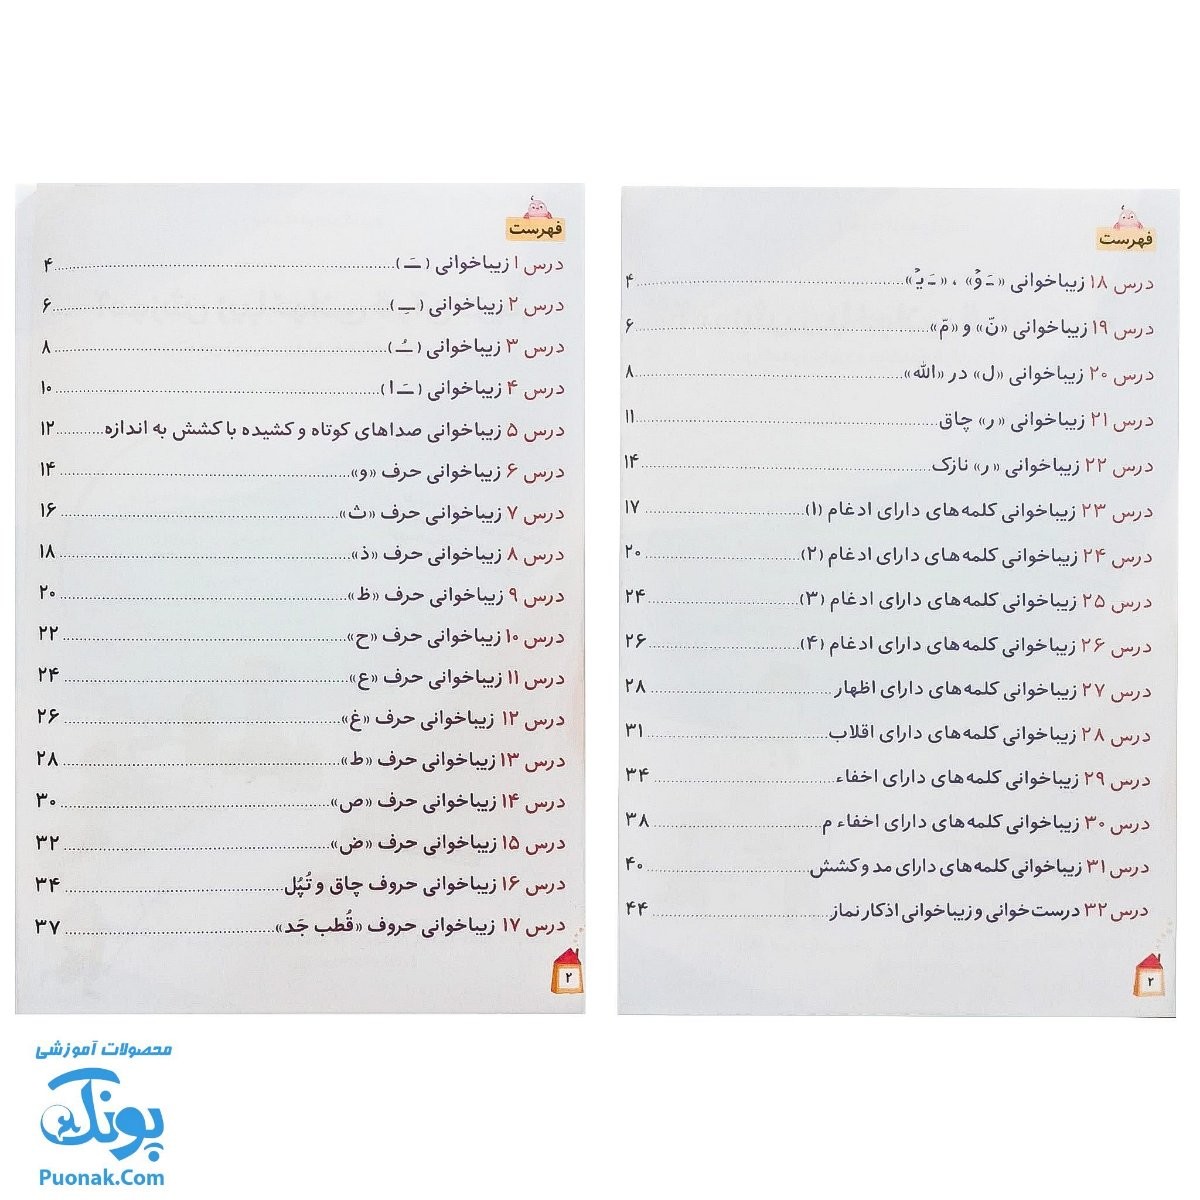 فهرست
درس ۱ زیباخوانی ( ـَ ) ........ ۴
درس ۲ زیباخوانی ( ـِ ) ........ ۶
درس ۳ زیباخوانی ( ـُ ) ........ ۸
درس ۴ زیباخوانی ( ـَ ا ) ........ ۱۰
درس ۵ زیباخوانی صداهای کوتاه و کشیده با کشش به اندازه ........ ۱۲
درس ۶ زیباخوانی حرف «و» ........ ۱۴
درس ۷ زیباخوانی حرف «ث» ........ ۱۶
درس ۸ زیباخوانی حرف «ذ» ........ ۱۸
درس ۹ زیباخوانی حرف «ظ» ........ ۲۰
درس ۱۰ زیباخوانی حرف «ح» ........ ۲۲
درس ۱۱ زیباخوانی حرف «ع» ........ ۲۴
درس ۱۲ زیباخوانی حرف «غ» ........ ۲۶
درس ۱۳ زیباخوانی حرف «ط» ........ ۲۸
درس ۱۴ زیباخوانی حرف «ص» ........ ۳۰
درس ۱۵ زیباخوانی حرف «ض» ........ ۳۲
درس ۱۶ زیباخوانی حروف چاق و تُپُل ........ ۳۴
درس ۱۷ زیباخوانی حروف «قُطب جَد» ........ ۳۷
۲
فهرست
درس ۱۸ زیباخوانی «ـَ وْ» ، «ـَ یْ» ........ ۴
درس ۱۹ زیباخوانی «نّ» و «مّ» ........ ۶
درس ۲۰ زیباخوانی «ل» در «الله» ........ ۸
درس ۲۱ زیباخوانی «ر» چاق ........ ۱۱
درس ۲۲ زیباخوانی «ر» نازک ........ ۱۴
درس ۲۳ زیباخوانی کلمه‌های دارای ادغام (۱) ........ ۱۷
درس ۲۴ زیباخوانی کلمه‌های دارای ادغام (۲) ........ ۲۰
درس ۲۵ زیباخوانی کلمه‌های دارای ادغام (۳) ........ ۲۴
درس ۲۶ زیباخوانی کلمه‌های دارای ادغام (۴) ........ ۲۶
درس ۲۷ زیباخوانی کلمه‌های دارای اظهار ........ ۲۸
درس ۲۸ زیباخوانی کلمه‌های دارای اقلاب ........ ۳۱
درس ۲۹ زیباخوانی کلمه‌های دارای اخفاء ........ ۳۴
درس ۳۰ زیباخوانی کلمه‌های دارای اخفاء م ........ ۳۸
درس ۳۱ زیباخوانی کلمه‌های دارای مد و کشش ........ ۴۰
درس ۳۲ درست‌خوانی و زیباخوانی اذکار نماز ........ ۴۴
۲
محصولات آموزشی
پونک
Puonak.Com